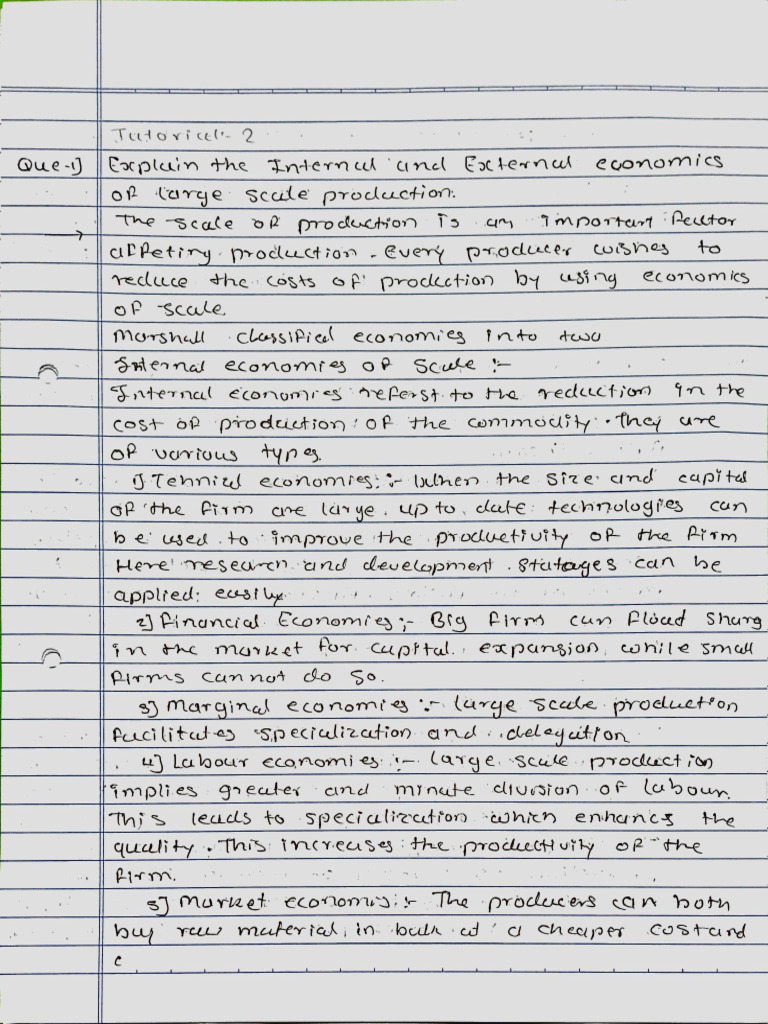 Tutorial:- 2
Que-1] Explain the Internal and External economics
of large scale production.
→ The scale of production is an important fector
affeting production. every producer wishes to
reduce the costs of production by using economics
of scale.
Marshall classified economies into two
Internal economies of Scale :-
Internal economies referst to the reduction in the
cost of production of the commodity. They are
of various types.
1] Tehnical economies :- When the size and capital
of the firm are large. up to date technologies can
be used to improve the productivity of the firm
Here research and development statages can be
applied easily
2] financial Economies ;- Big firms can fload sharg
in the market for capital expansion, while small
firms cannot do so.
3] Marginal economies :- large scale production
facilitates specialization and delegation
4] Labour economies :- large scale production
implies greater and minute division of labour.
This leads to specialization which enhancs the
quality. This increases the productivity of the
firm.
5] Market economis :- The producers can both
buy raw material in bulk at a cheaper cost and
c